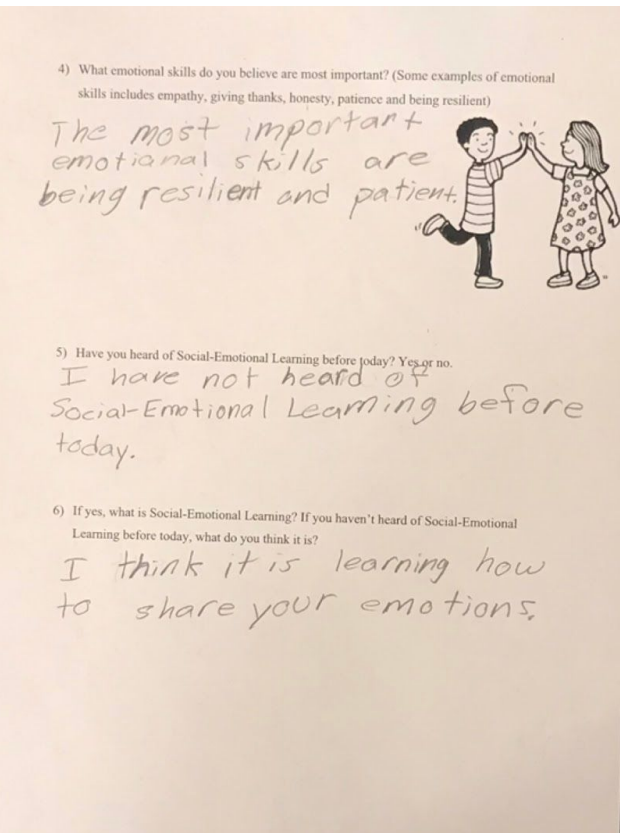 4) What emotional skills do you believe are most important? (Some examples of emotional
skills includes empathy, giving thanks, honesty, patience and being resilient)
The most important
emotional skills are
being resilient and patient.
5) Have you heard of Social-Emotional Learning before today? Yes or no.
I have not heard of
Social-Emotional Learning before
today.
6) If yes, what is Social-Emotional Learning? If you haven't heard of Social-Emotional
Learning before today, what do you think it is?
I think it is learning how
to share your emotions.